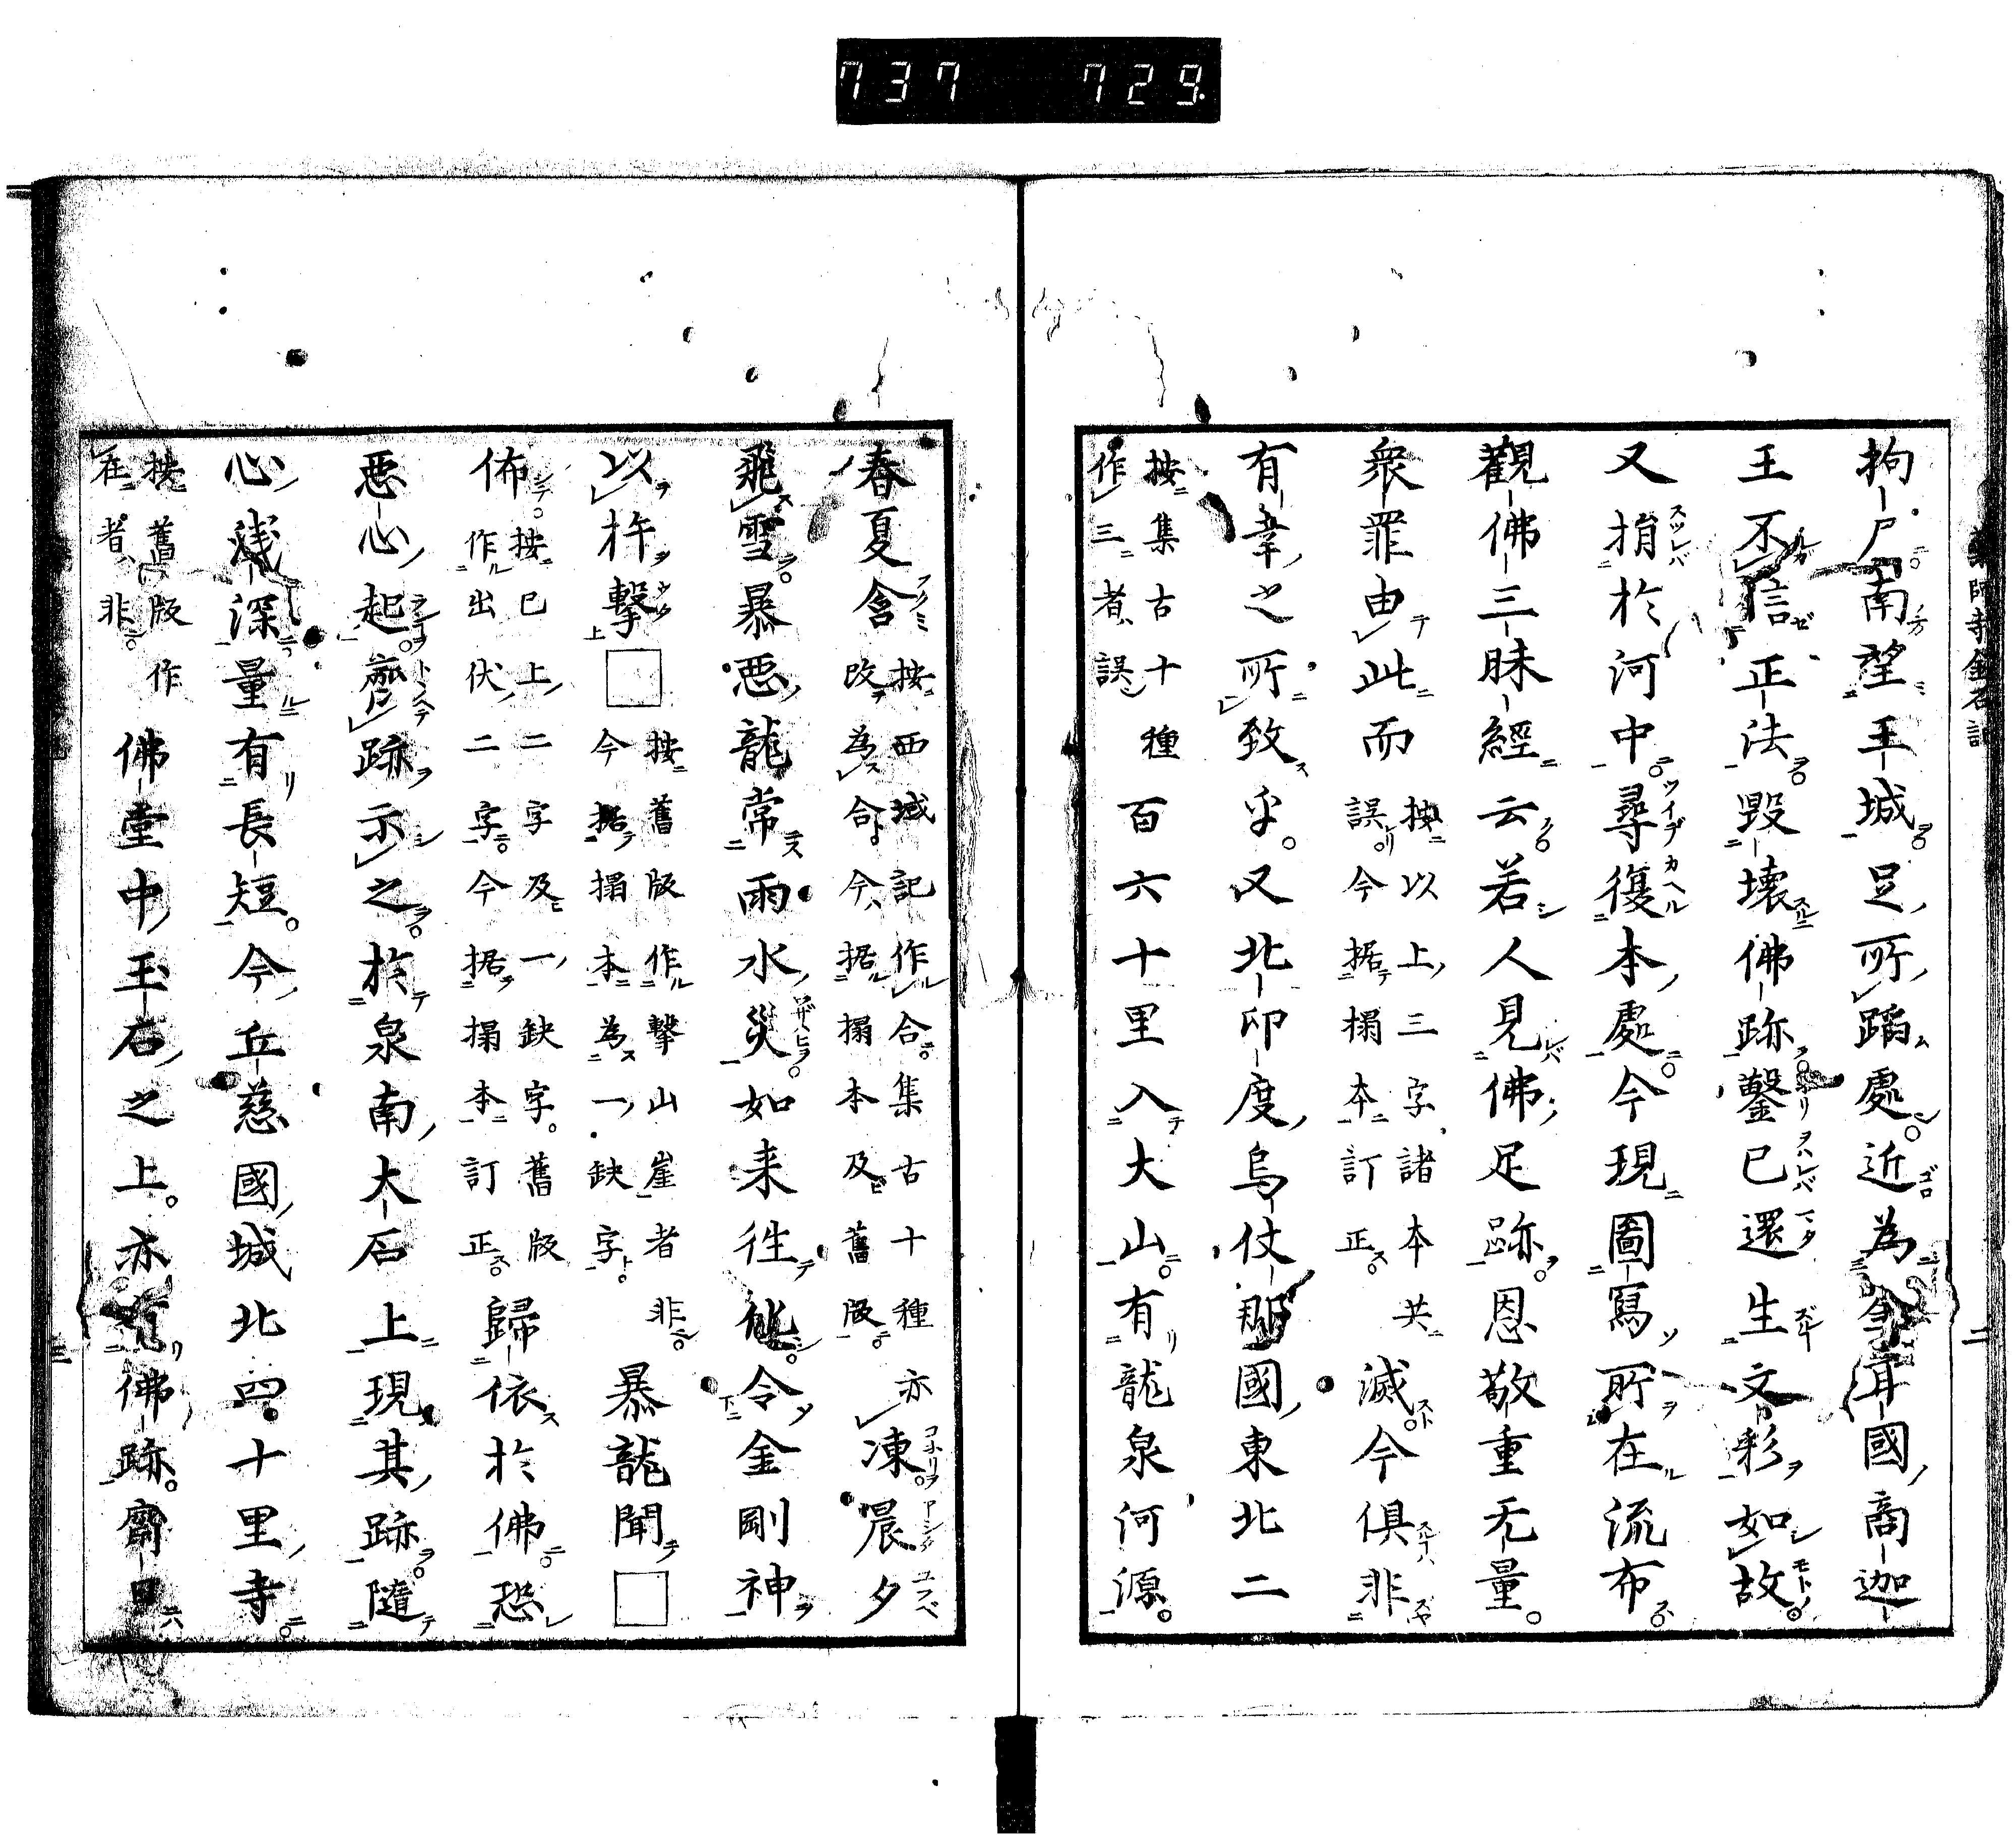 737 729.
拘尸南望王城足所蹈處近為金耳國商迦
王不信正法毀壞佛跡鑿已還生文彩如故
又捐於河中尋復本處今現圖寫所在流布
觀佛三昧經云若人見佛足跡恩敬重无量
衆罪由此而按以上三字諸本共誤今據搨本訂正滅今俱非
有幸之所致乎又北印度烏仗那國東北二
按集古十種作三者誤百六十里入大山有龍泉河源
春夏含按西域記作合集古十種改為合今據搨本及舊版亦凍晨夕
飛雪暴惡龍常雨水災如来往化令金剛神
以杵擊□按舊版作擊山崖者非今據搨本為一缺字暴龍聞□
佈按已上二字及一缺字舊版作出伏二字今據搨本訂正歸依於佛恐
惡心起齊跡示之於泉南大石上現其跡隨
心淺深量有長短今丘慈國城北四十里寺
按舊版作在者非佛堂中玉石之上亦佛跡齋日